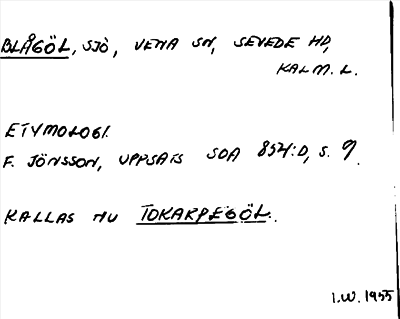 BLÅGÖL, SJÖ, VENA SN, SEVEDE HD,
KALM. L.
ETYMOLOGI.
F. JÖNSSON, UPPSATS SOA 854:D, S. 9.
KALLAS NU TOKARPEGÖL.
I.W. 1955